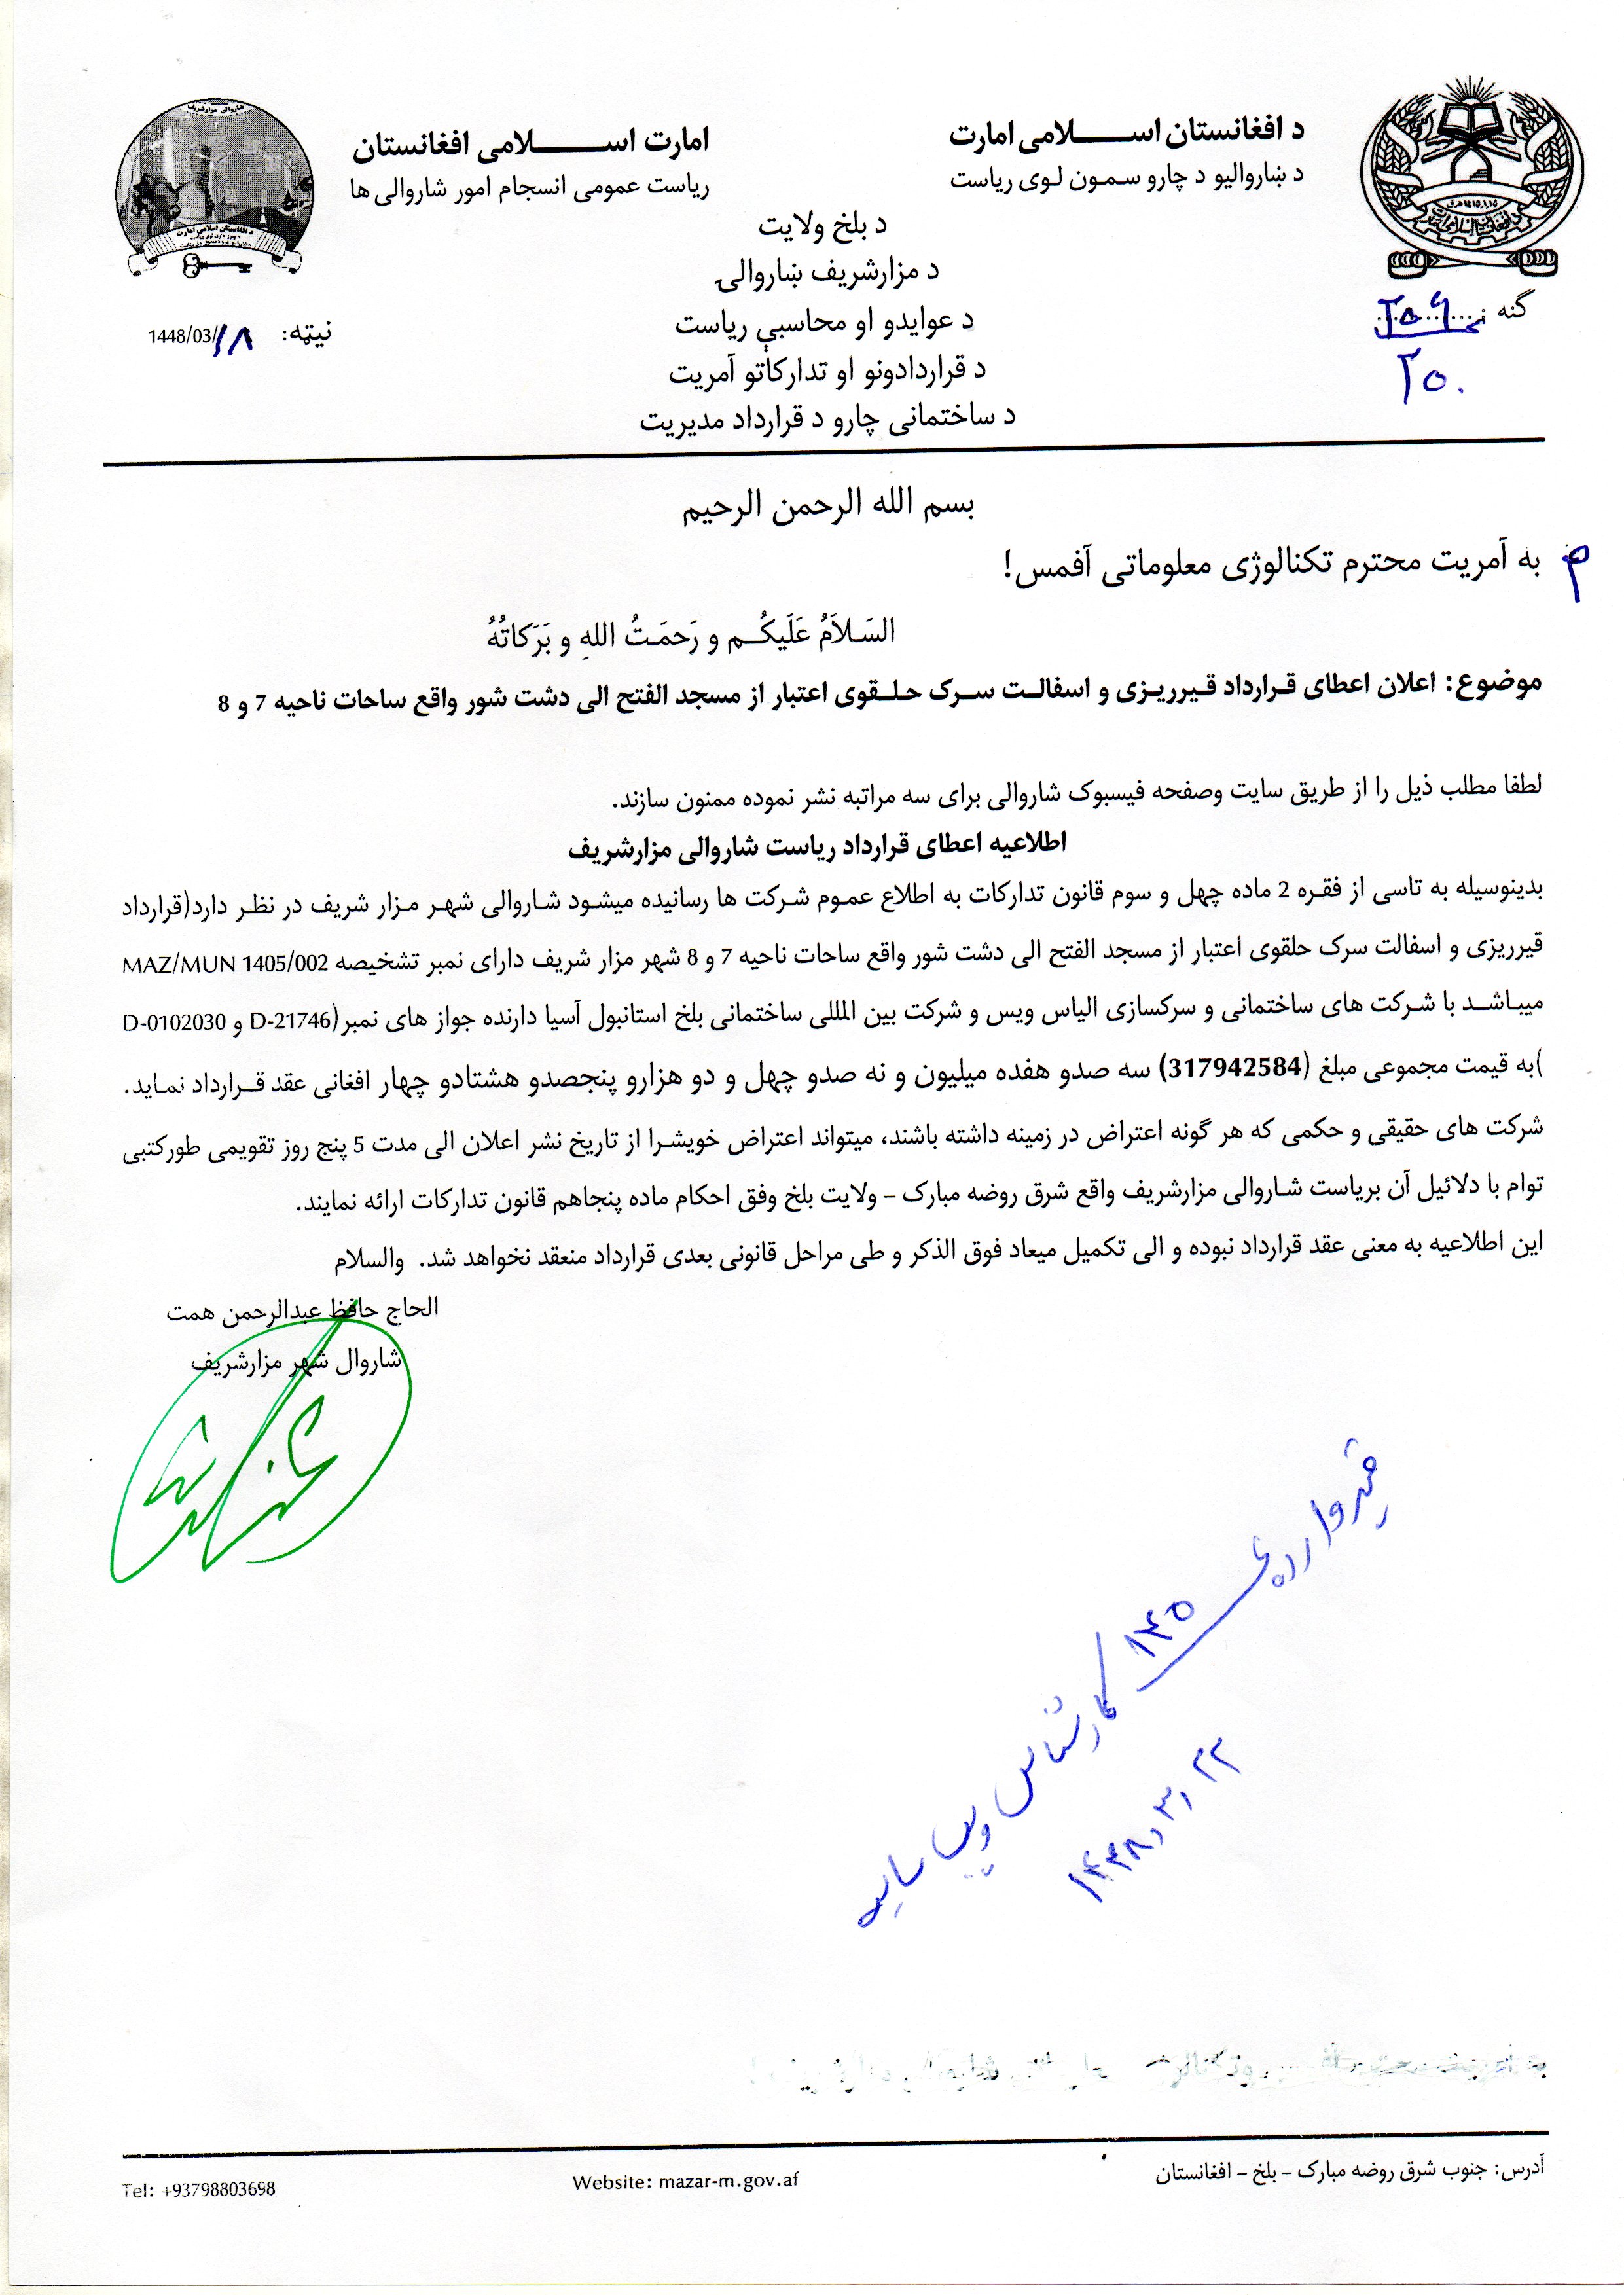 د افغانستان اســــــلامی امارت
د ښاروالیو د چارو سمون لوی ریاست
امارت اســــــلامی افغانستان
ریاست عمومی انسجام امور شاروالی ها
د بلخ ولایت
د مزارشریف ښاروالی
د عوایدو او محاسبې ریاست
د قراردادونو او تدارکاتو آمریت
د ساختمانی چارو د قرارداد مدیریت
گڼه :
نیټه: 1448/03/۱۸
بسم الله الرحمن الرحیم
به آمریت محترم تکنالوژی معلوماتی آفمس!
السَـلاَمُ عَلَیکُــم و رَحمَـتُ اللهِ و بَرَکاتُهُ
موضوع: اعلان اعطای قـرارداد قـیرریـزی و اسفالـت سـرک حـلـقوی اعتبار از مسجد الفتح الی دشت شور واقع ساحات ناحیه 7 و 8
لطفا مطلب ذیل را از طریق سایت وصفحه فیسبوک شاروالی برای سه مراتبه نشر نموده ممنون سازند.
اطلاعیه اعطای قرارداد ریاست شاروالی مزارشریف
بدینوسیله به تاسی از فقره 2 ماده چهل و سوم قانون تدارکات به اطلاع عمـوم شـرکت ها رسانیده میشـود شـاروالی شهـر مـزار شریف در نظـر دارد(قرارداد
قیرریزی و اسفالت سرک حلقوی اعتبار از مسجد الفتح الی دشت شور واقع ساحات ناحیه 7 و 8 شهر مزار شریف دارای نمبر تشخیصه MAZ/MUN 1405/002
میبـاشــد با شـرکت های ساختمانی و سرکسازی الیاس ویس و شرکت بین المللی ساختمانی بلخ استانبول آسیا دارنده جواز های نمبر(D-21746 و D-0102030
)به قیمت مجموعی مبلغ (317942584) سه صدو هفده میلیون و نه صدو چهل و دو هزارو پنجصدو هشتادو چهار افغانی عقد قــرارداد نمـاید.
شرکت های حقیقی و حکمی که هر گونه اعتراض در زمینه داشته باشند، میتواند اعتراض خویشـرا از تاریخ نشر اعلان الی مدت 5 پنج روز تقویمی طورکتبی
توام با دلائیل آن بریاست شـاروالی مزارشریف واقع شرق روضه مبارک – ولایت بلخ وفق احکام ماده پنجاهم قانون تدارکات ارائه نمایند.
این اطلاعیه به معنی عقد قرارداد نبوده و الی تکمیل میعاد فوق الذکر و طی مراحل قانونی بعدی قرارداد منعقد نخواهد شد. والسلام
الحاج حافظ عبدالرحمن همت
شاروال شهر مزارشریف
کارشناس ویب سایت
۱۴۴۸٫۳٫۲۲
آدرس: جنوب شرق روضه مبارک – بلخ – افغانستان
Website: mazar-m.gov.af
Tel: +93798803698